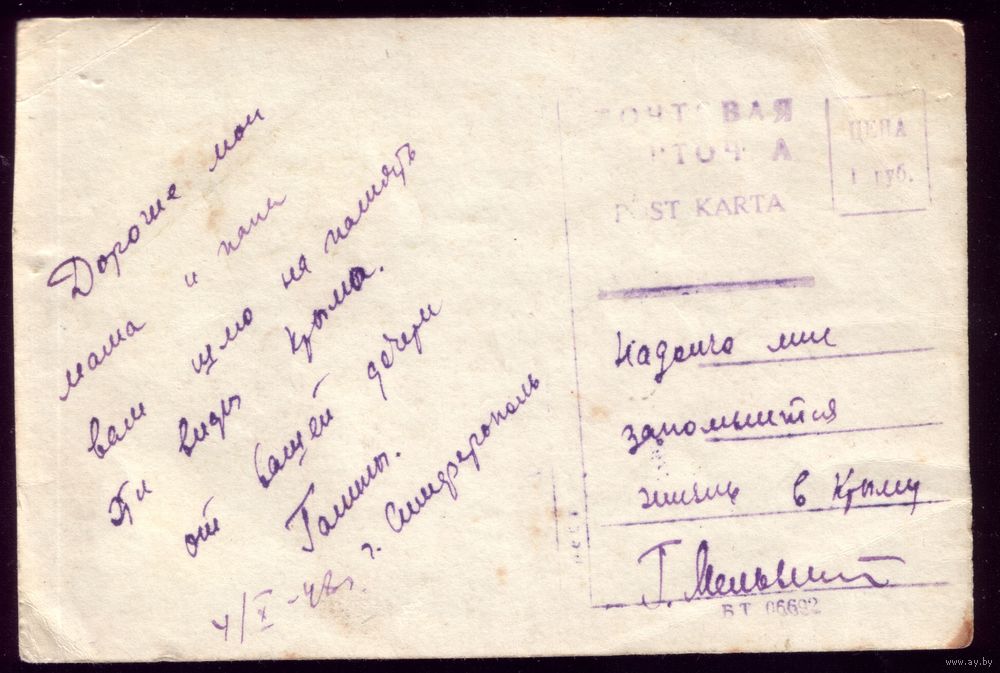 Дорогие мои
мама и папа
вам шлю на память
Эти виды Крыма.
от вашей дочери
Галины.
4/X-48г. г. Симферополь
ПОЧТОВАЯ
РТОЧ А
P ST KARTA
ЦЕНА
1 руб.
Надолго мне
запомнится
жизнь в Крыму
Г. Мельн
БТ 06692
www.ay.by